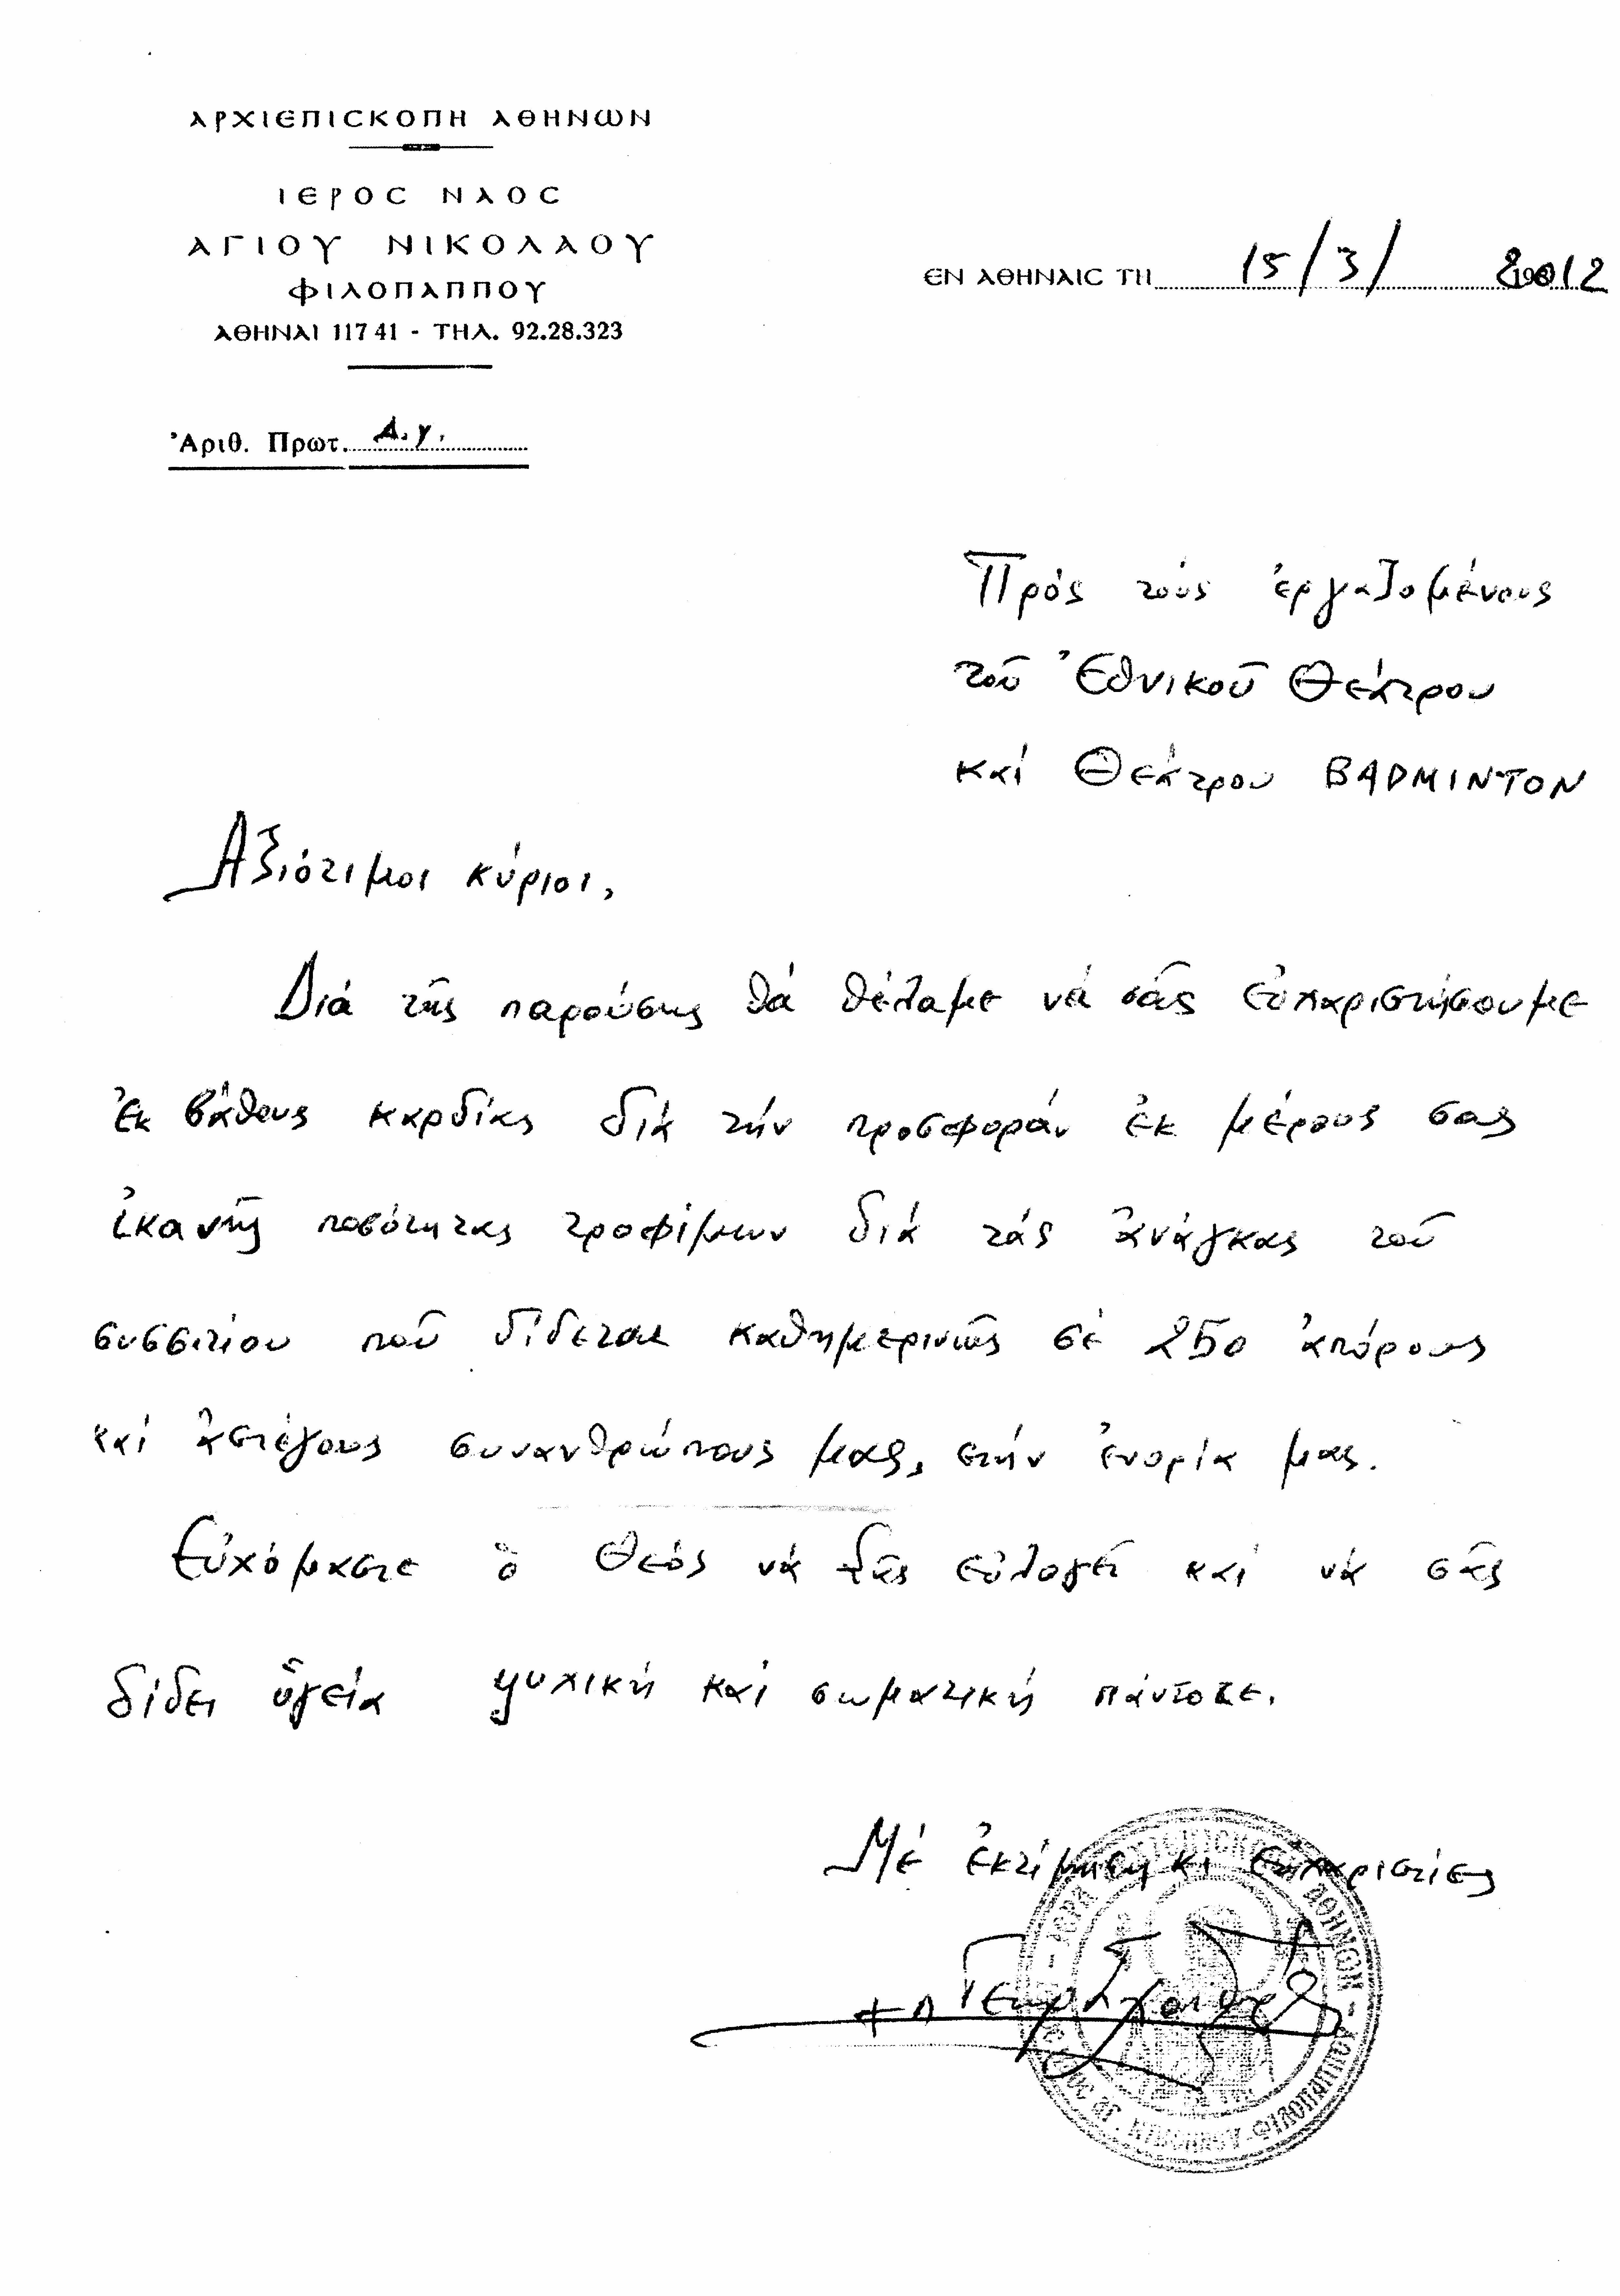 ΑΡΧΙΕΠΙΣΚΟΠΗ ΑΘΗΝΩΝ
ΙΕΡΟΣ ΝΑΟΣ
ΑΓΙΟΥ ΝΙΚΟΛΑΟΥ
ΦΙΛΟΠΑΠΠΟΥ
ΑΘΗΝΑΙ 117 41 - ΤΗΛ. 92.28.323
ΕΝ ΑΘΗΝΑΙΣ ΤΗ 15/3/ 2012
Ἀριθ. Πρωτ. Δ.γ.
Πρός τούς ἐργαζομένους
τοῦ Ἐθνικοῦ Θεάτρου
καί Θεάτρου BADMINTON
Ἀξιότιμοι κύριοι,
Διά τῆς παρούσης θά θέλαμε νά σᾶς εὐχαριστήσουμε
ἐκ βάθους καρδίας διά τήν προσφοράν ἐκ μέρους σας
ἱκανῆς ποσότητας τροφίμων διά τάς ἀνάγκας τοῦ
συσσιτίου ποῦ δίδεται καθημερινῶς σέ 250 ἀπόρους
καί ἀστέγους συνανθρώπους μας, στήν ἐνορία μας.
Εὐχόμαστε ὁ Θεός νά σᾶς εὐλογεῖ καί νά σᾶς
δίδει ὑγεία ψυχική καί σωματική πάντοτε.
Μέ ἐκτίμηση κι εὐχαριστίες
ΑΘΗΝΩΝ - ΦΙΛΟΠΑΠΠΟΥ